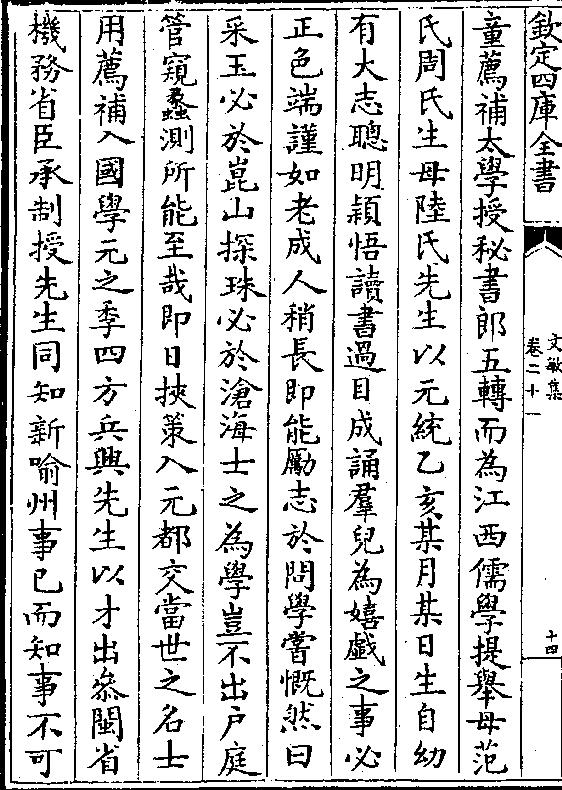 欽定四庫全書
文敏集
卷二十一
十四
童薦補太學授秘書郎五轉而為江西儒學提舉母范
氏周氏生母陸氏先生以元統乙亥某月某日生自幼
有大志聰明穎悟讀書過目成誦羣兒為嬉戲之事必
正色端謹如老成人稍長即能勵志於問學嘗慨然曰
采玉必於崑山探珠必於滄海士之為學豈不出户庭
管窺蠡測所能至哉即日挾策入元都交當世之名士
用薦補入國學元之季四方兵興先生以才出叅閩省
機務省臣承制授先生同知新喻州事已而知事不可